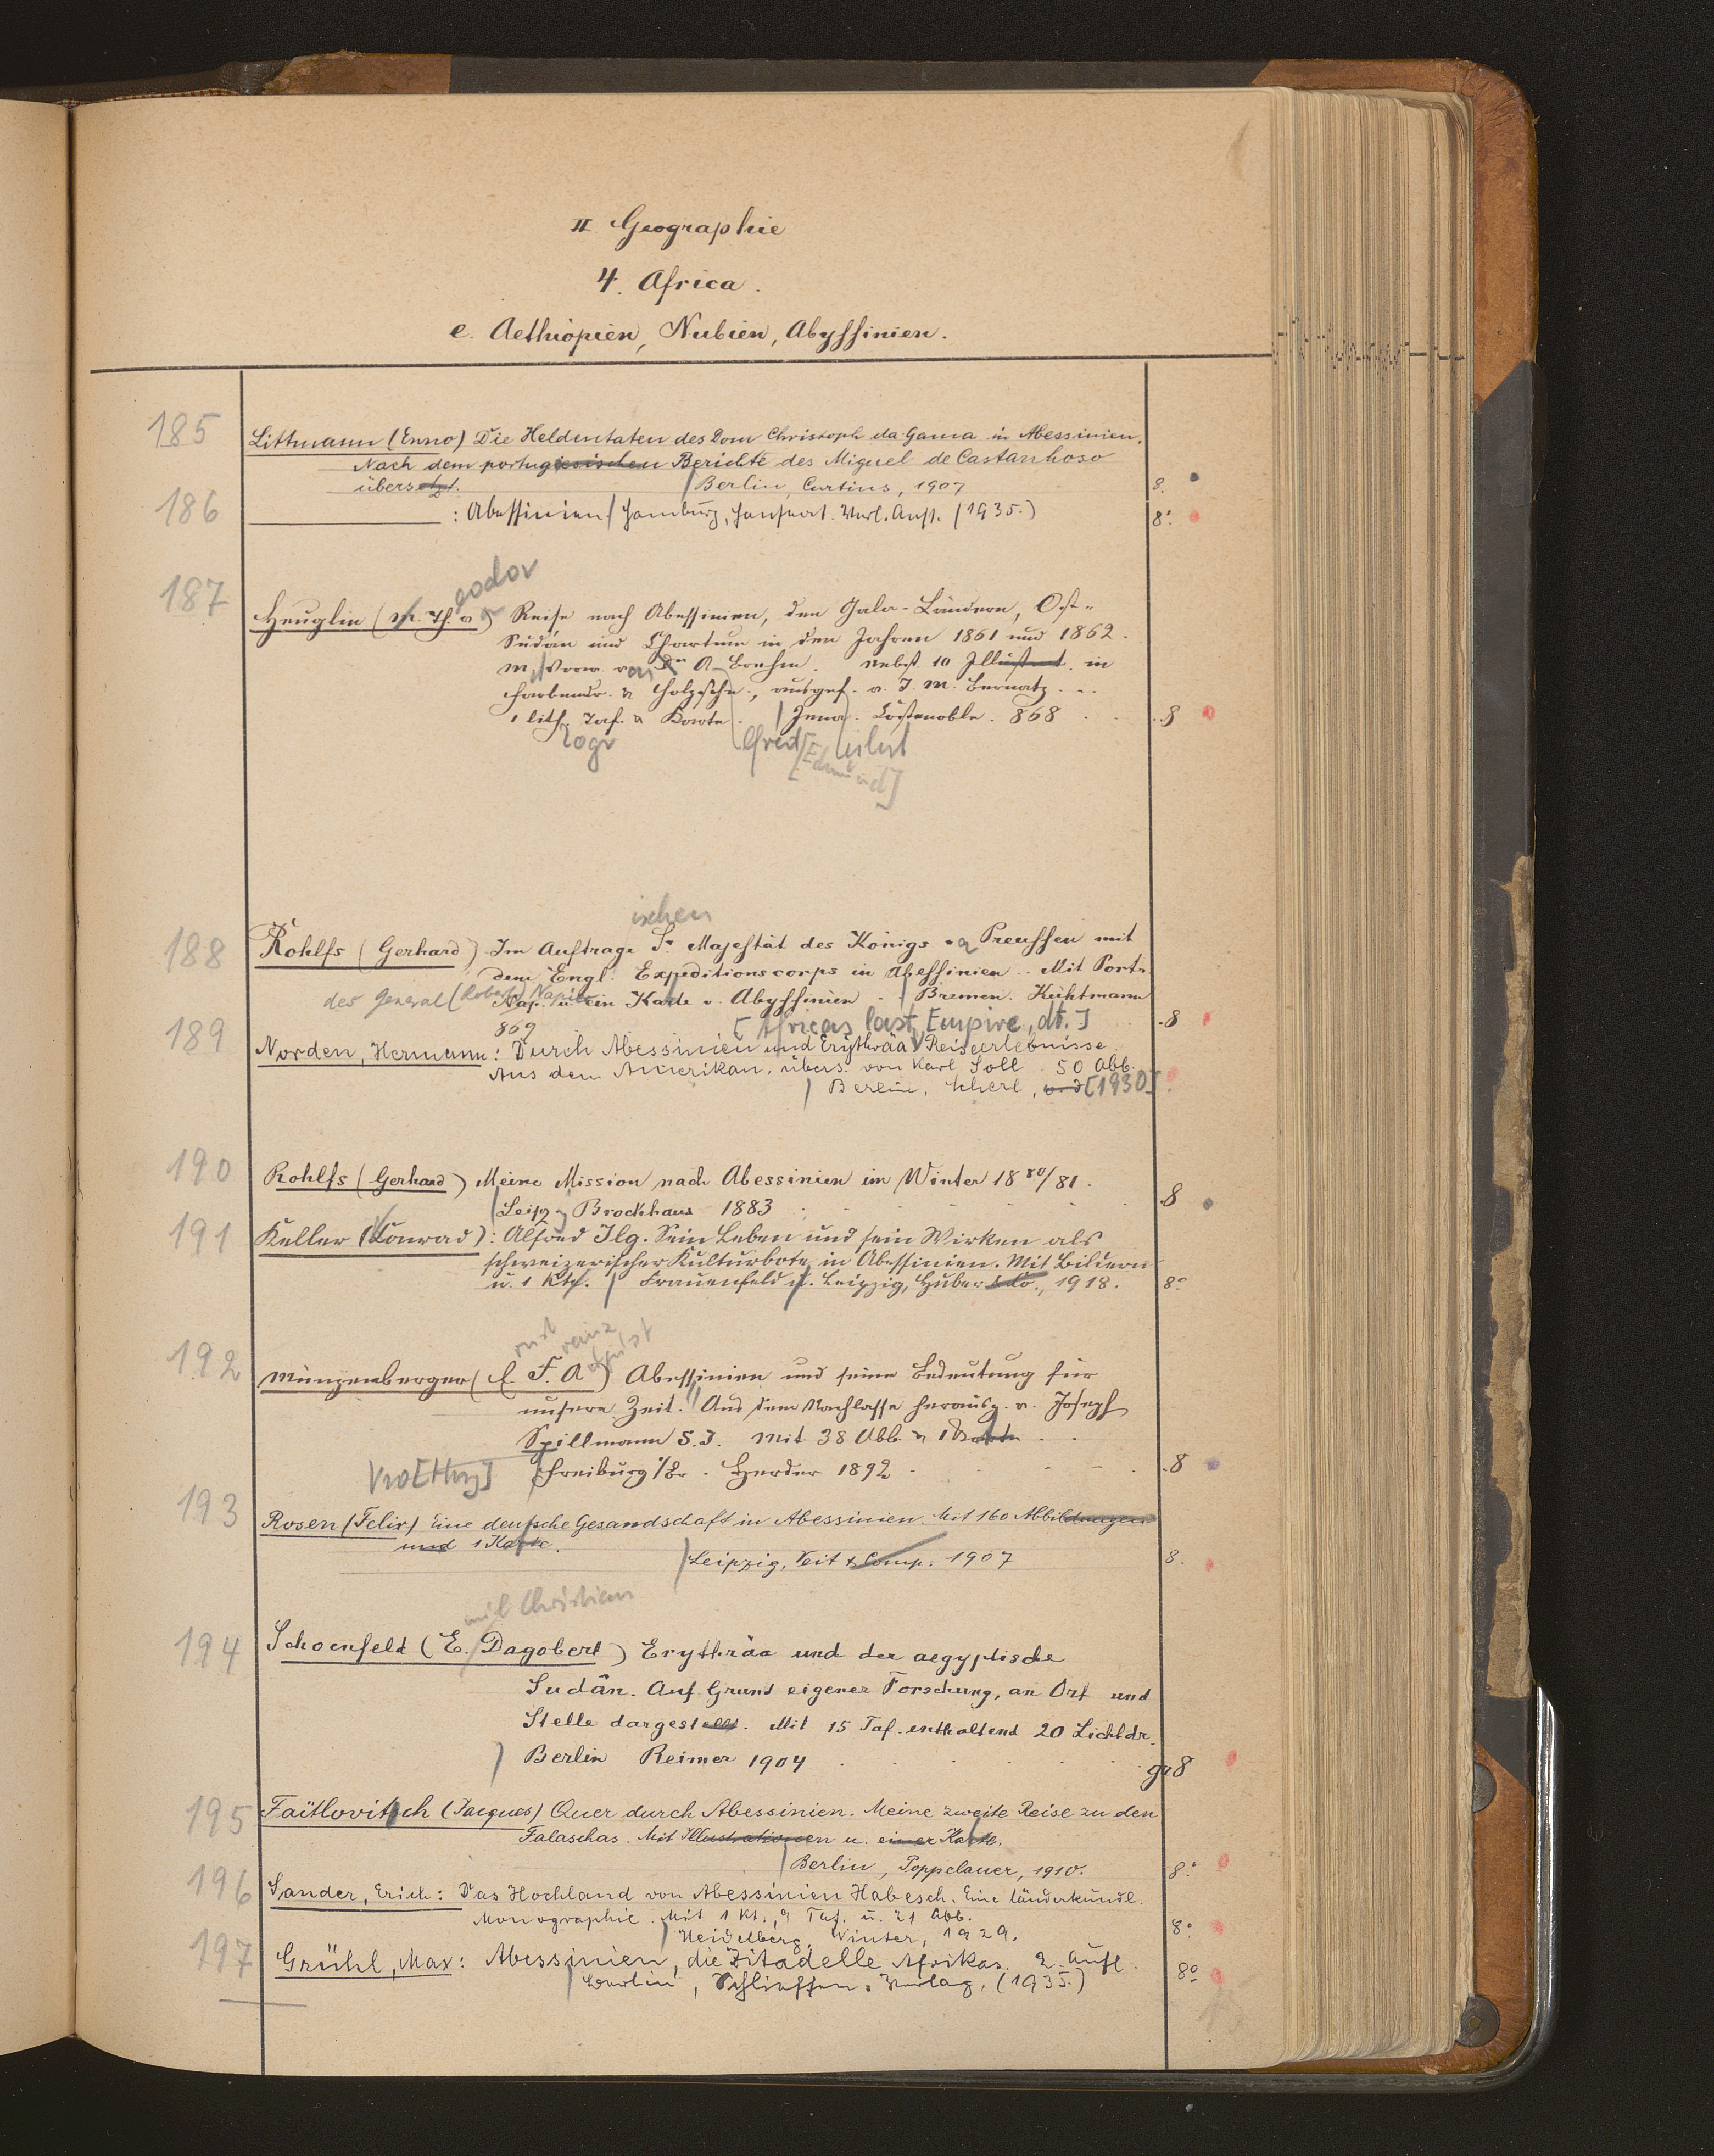 II Geographie
4. Africa.
e. Aethiopien, Nubien, Abyssinien.
185
Littmann (Enno) Die Heldentaten des Dom Christoph da Gama in Abessinien.
Nach dem portugiesischen Berichte des Miguel de Castanhoso
übersetzt. Berlin, Curtius, 1907 8.
186
: Abessinien Hamburg, Hanseat. Verl. Anst. (1935.) 8°.
godor
187
Heuglin (M. Th. v.) Reise nach Abessinien, den Gala-Ländern, Ost-
Sudán und Chartum in den Jahren 1861 und 1862.
M. Vorw. von Dr. A. Brehm. Nebst 10 Illustrat. in
Farbendr. & Holzschn., ausgef. v. J. M. Bernatz.
1 lith. Taf. & Karte. Jena. Costenoble. 868 8
logr lfred [Edmund]
ischen
188
Rohlfs (Gerhard) Im Auftrage Sr Majestät des Königs v. Preussen mit
dem Engl. Expeditionscorps in Abessinien. Mit Portr.
des General (Robert) Napier Nap. u. ein Karte v. Abyssinien. Bremen. Kühtmann
869 8
[Africas last Empire, dt.]
189
Norden, Hermann: Durch Abessinien und Erythräa Reiseerlebnisse.
Aus dem Amerikan. übers. von Karl Soll. 50 Abb.
Berlin, Scherl, o. J. [1930]
190
Rohlfs (Gerhard) Meine Mission nach Abessinien im Winter 1880/81.
Leipzig Brockhaus 1883 8
191
Keller (Conrad): Alfred Ilg. Sein Leben und sein Wirken als
schweizerischer Kulturbote in Abessinien. Mit Bildern
u. 1 Kte. Frauenfeld u. Leipzig, Huber & Co., 1918. 8°
rnst ranz ugust
192
Münzenberger (E. F. A) Abessinien und seine Bedeutung für
unsere Zeit. Aus dem Nachlasse herausg. v. Joseph
Spillmann S. J. Mit 38 Abb. & 1 Karte
Freiburg i/Br. Herder 1892 8
193
Rosen (Felix) Eine deutsche Gesandschaft in Abessinien. Mit 160 Abbildungen
und 1 Karte.
Leipzig, Veit & Comp. 1907 8.
mil Christian
194
Schoenfeld (E. Dagobert) Erythräa und der aegyptische
Sudân. Auf Grund eigener Forschung, an Ort und
Stelle dargestellt. Mit 15 Taf. enthaltend 20 Lichtdr.
Berlin Reimer 1904 gr 8
195
Faïtlovitsch (Jacques) Quer durch Abessinien. Meine zweite Reise zu den
Falaschas. Mit Illustrationen u. einer Karte.
Berlin, Poppelauer, 1910. 8°
196
Sander, Erich: Das Hochland von Abessinien Habesch. Eine länderkundl.
Monographie. Mit 1 Kt., 9 Taf. u. 21 Abb.
Heidelberg, Winter, 1929. 8°
197
Grühl, Max: Abessinien, die Zitadelle Afrikas. 2. Aufl.
Berlin, Schlieffen-Verlag, (1935.) 8°